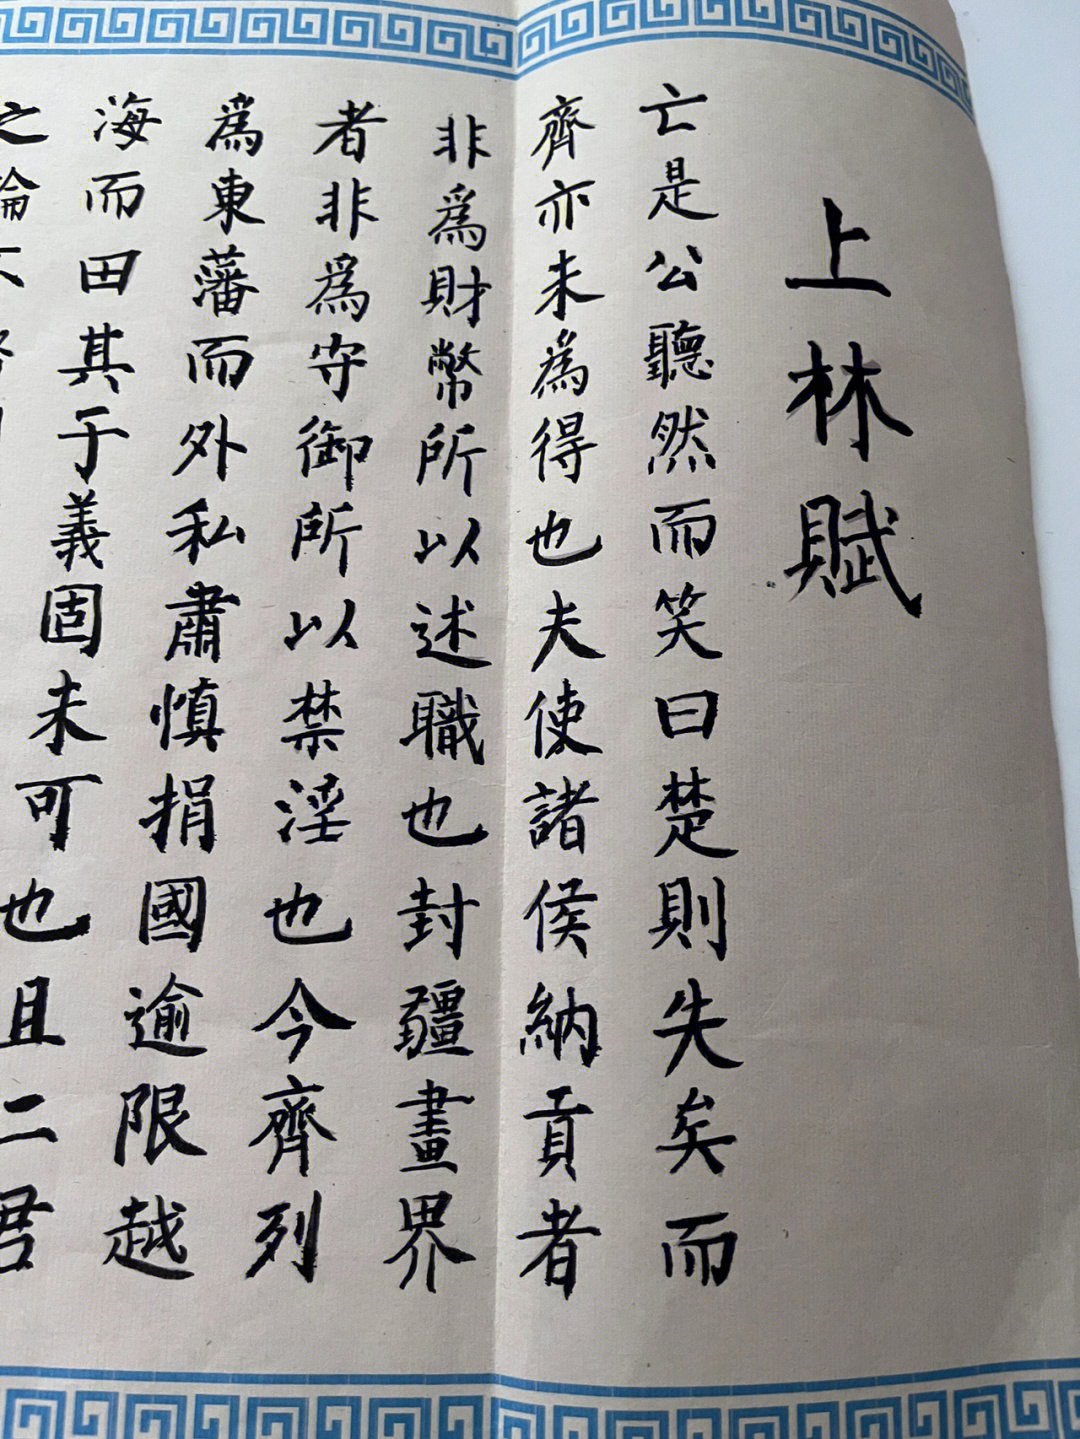 上林賦
亡是公聽然而笑曰楚則失矣而
齊亦未爲得也夫使諸侯納貢者
非爲財幣所以述職也封疆畫界
者非爲守御所以禁淫也今齊列
爲東藩而外私肅慎捐國逾限越
海而田其于義固未可也且二君
之論不